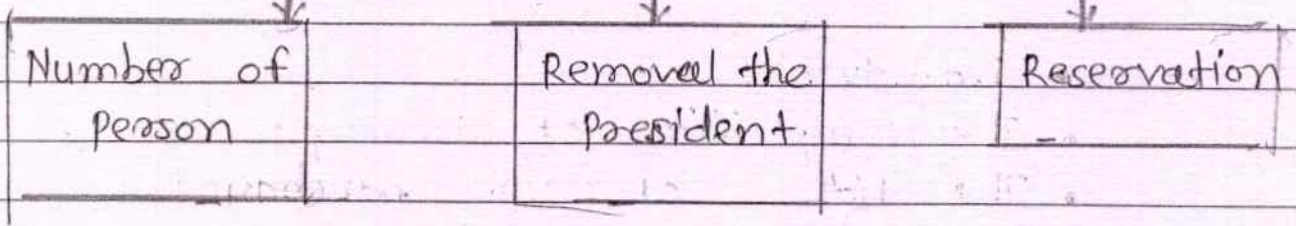 Number of
Person
Removal the
President.
Reservation